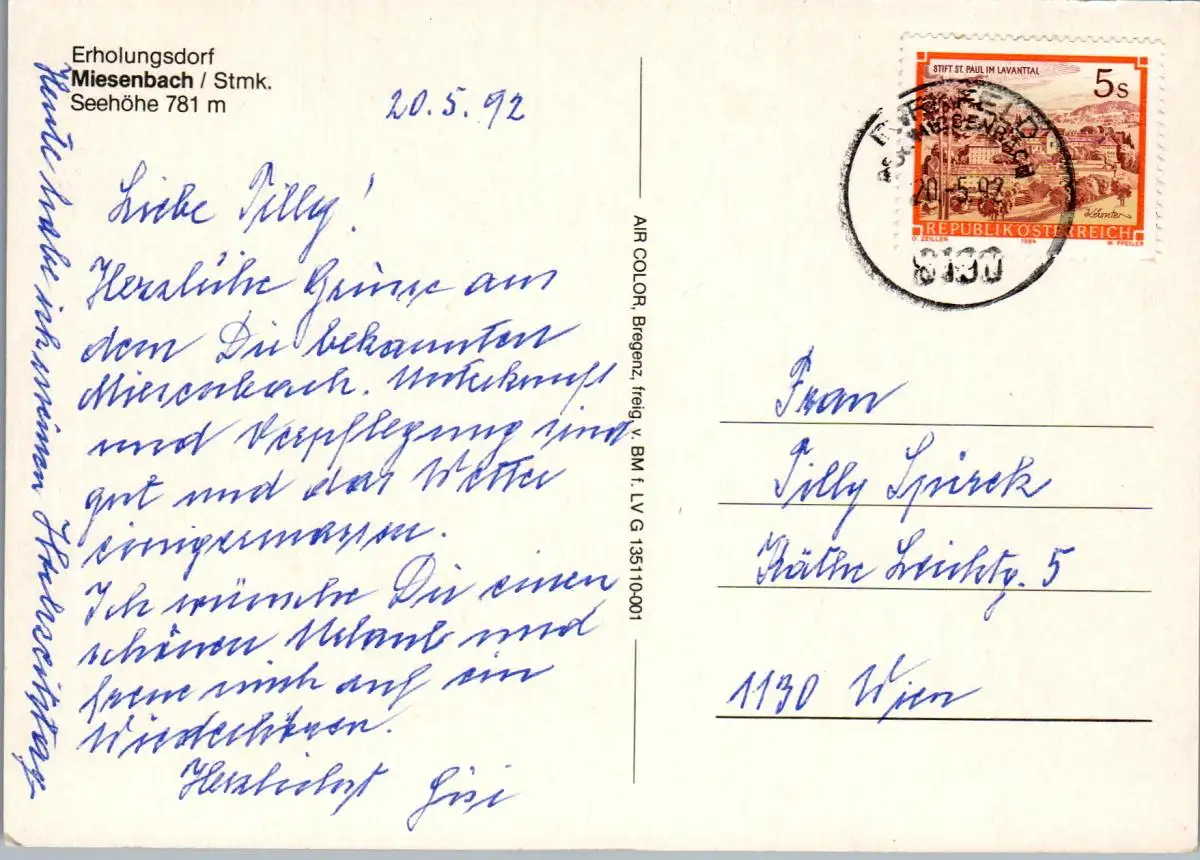 Erholungsdorf
Miesenbach / Stmk.
Seehöhe 781 m
20.5.92
Liebe Tilly!
Herzliche Grüsse aus
dem Dir bekannten
Miesenbach. Unterkunft
und Verpflegung sind
gut und das Wetter
einigermassen.
Ich wünsche Dir einen
schönen Urlaub und
freue mich auf ein
Wiederhören.
Herzlichst Gisi
Heute habe ich meinen
AIR COLOR, Bregenz, freig. v. BM f. LV G 135110-001
STIFT ST. PAUL IM LAVANTTAL
5s
REPUBLIK ÖSTERREICH
O. ZEILLER 1984 W. PFEILER
MIESENBACH
20.-5.92
8190
Frau
Tilly Spirek
Käthe Leichtg. 5
1130 Wien